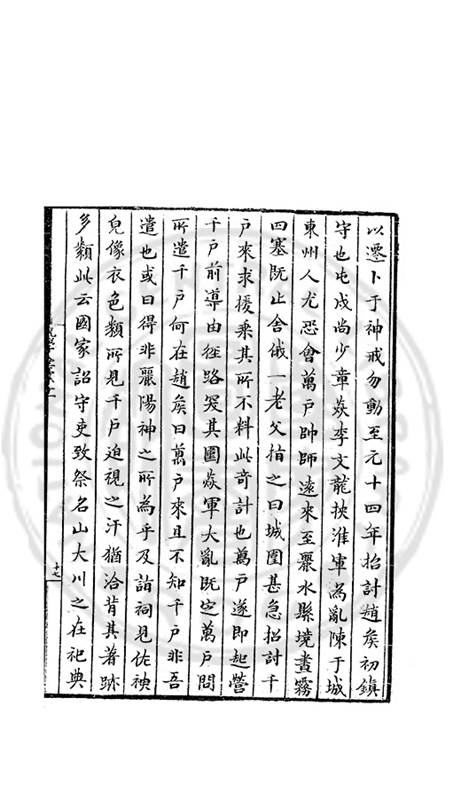 以遷卜于神戒勿動至元十四年招討趙矦初鎮
守也屯戍尚少章焱李文龍挾淮軍為亂陳于城
東州人尤恐會萬戶帥師遠來至麗水縣境晝霧
四塞旣止舍俄一老父指之曰城圍甚急招討千
戶來求援乘其所不料此奇計也萬戶遂即起營
千戶前導由徑路冥其圍焱軍大亂旣定萬戶問
所遣千戶何在趙矦曰萬戶來且不知千戶非吾
遣也或曰得非麗陽神之所為乎及詣祠見佐神
皃像衣色類所見千戶迫視之汗猶洽背其著跡
多類此云國家詔守吏致祭名山大川之在祀典
十七